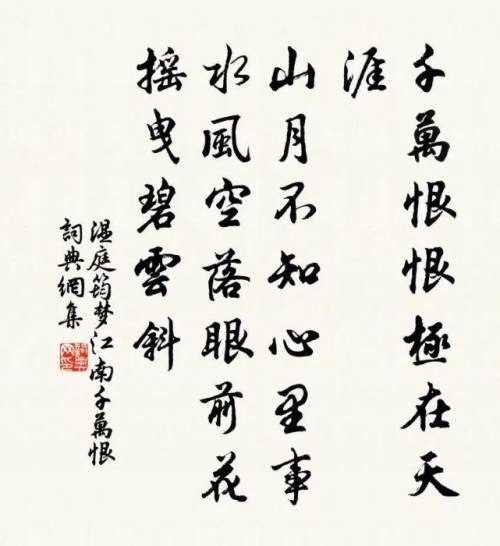 千萬恨恨極在天
涯
山月不知心里事
水風空落眼前花
摇曳碧雲斜
温庭筠梦江南千萬恨
詞典網集